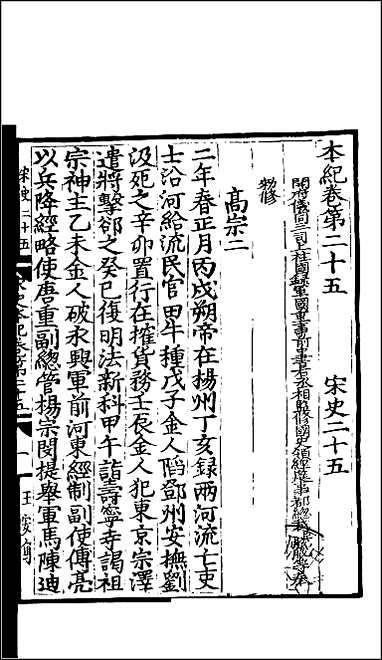 本紀卷第二十五　宋史二十五
開府儀同三司上柱國録軍國重事前中書右丞相監修國史領經筵事都總裁臣脫脫等奉
勑修
高宗二
二年春正月丙戌朔帝在揚州丁亥録兩河流亡吏
士沿河給流民官田牛種戊子金人䧟鄧州安撫劉
汲死之辛卯置行在榷貨務壬辰金人犯東京宗澤
遣將擊郤之癸巳復明法新科甲午詣壽寧寺謁祖
宗神主乙未金人破永興軍前河東經制副使傳亮
以兵降經略使唐重副總管楊宗閔提舉軍馬陳迪
宋史二十五